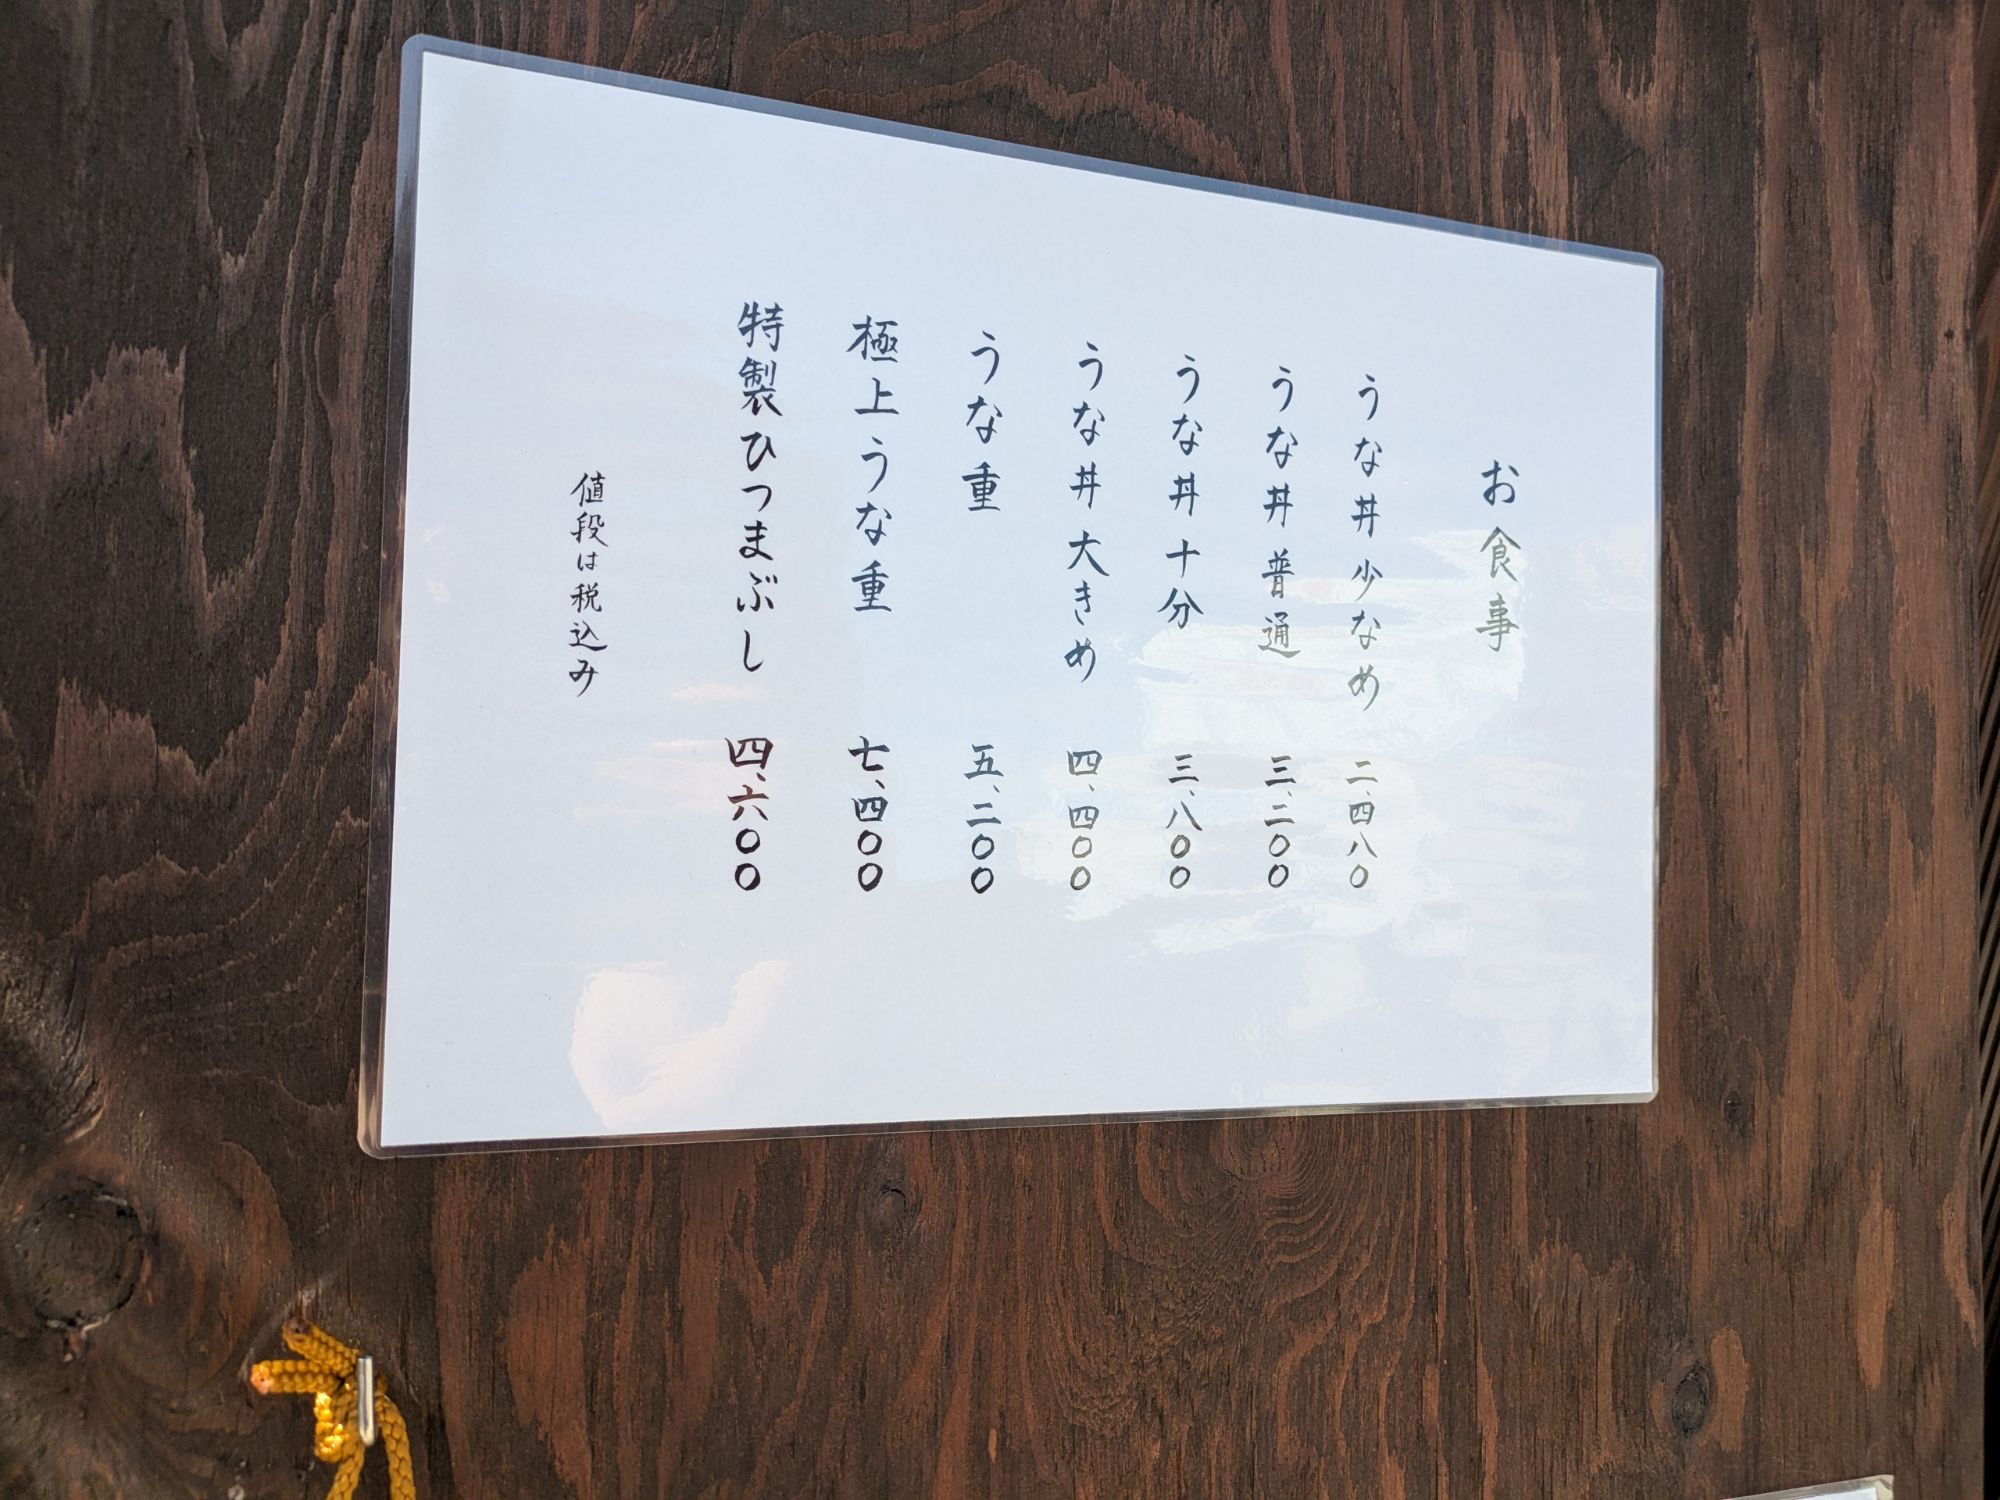 お食事
うな丼 少なめ 二、四八〇
うな丼 普通 三、二〇〇
うな丼 十分 三、八〇〇
うな丼 大きめ 四、四〇〇
うな重 五、二〇〇
極上うな重 七、四〇〇
特製ひつまぶし 四、六〇〇
値段は税込み